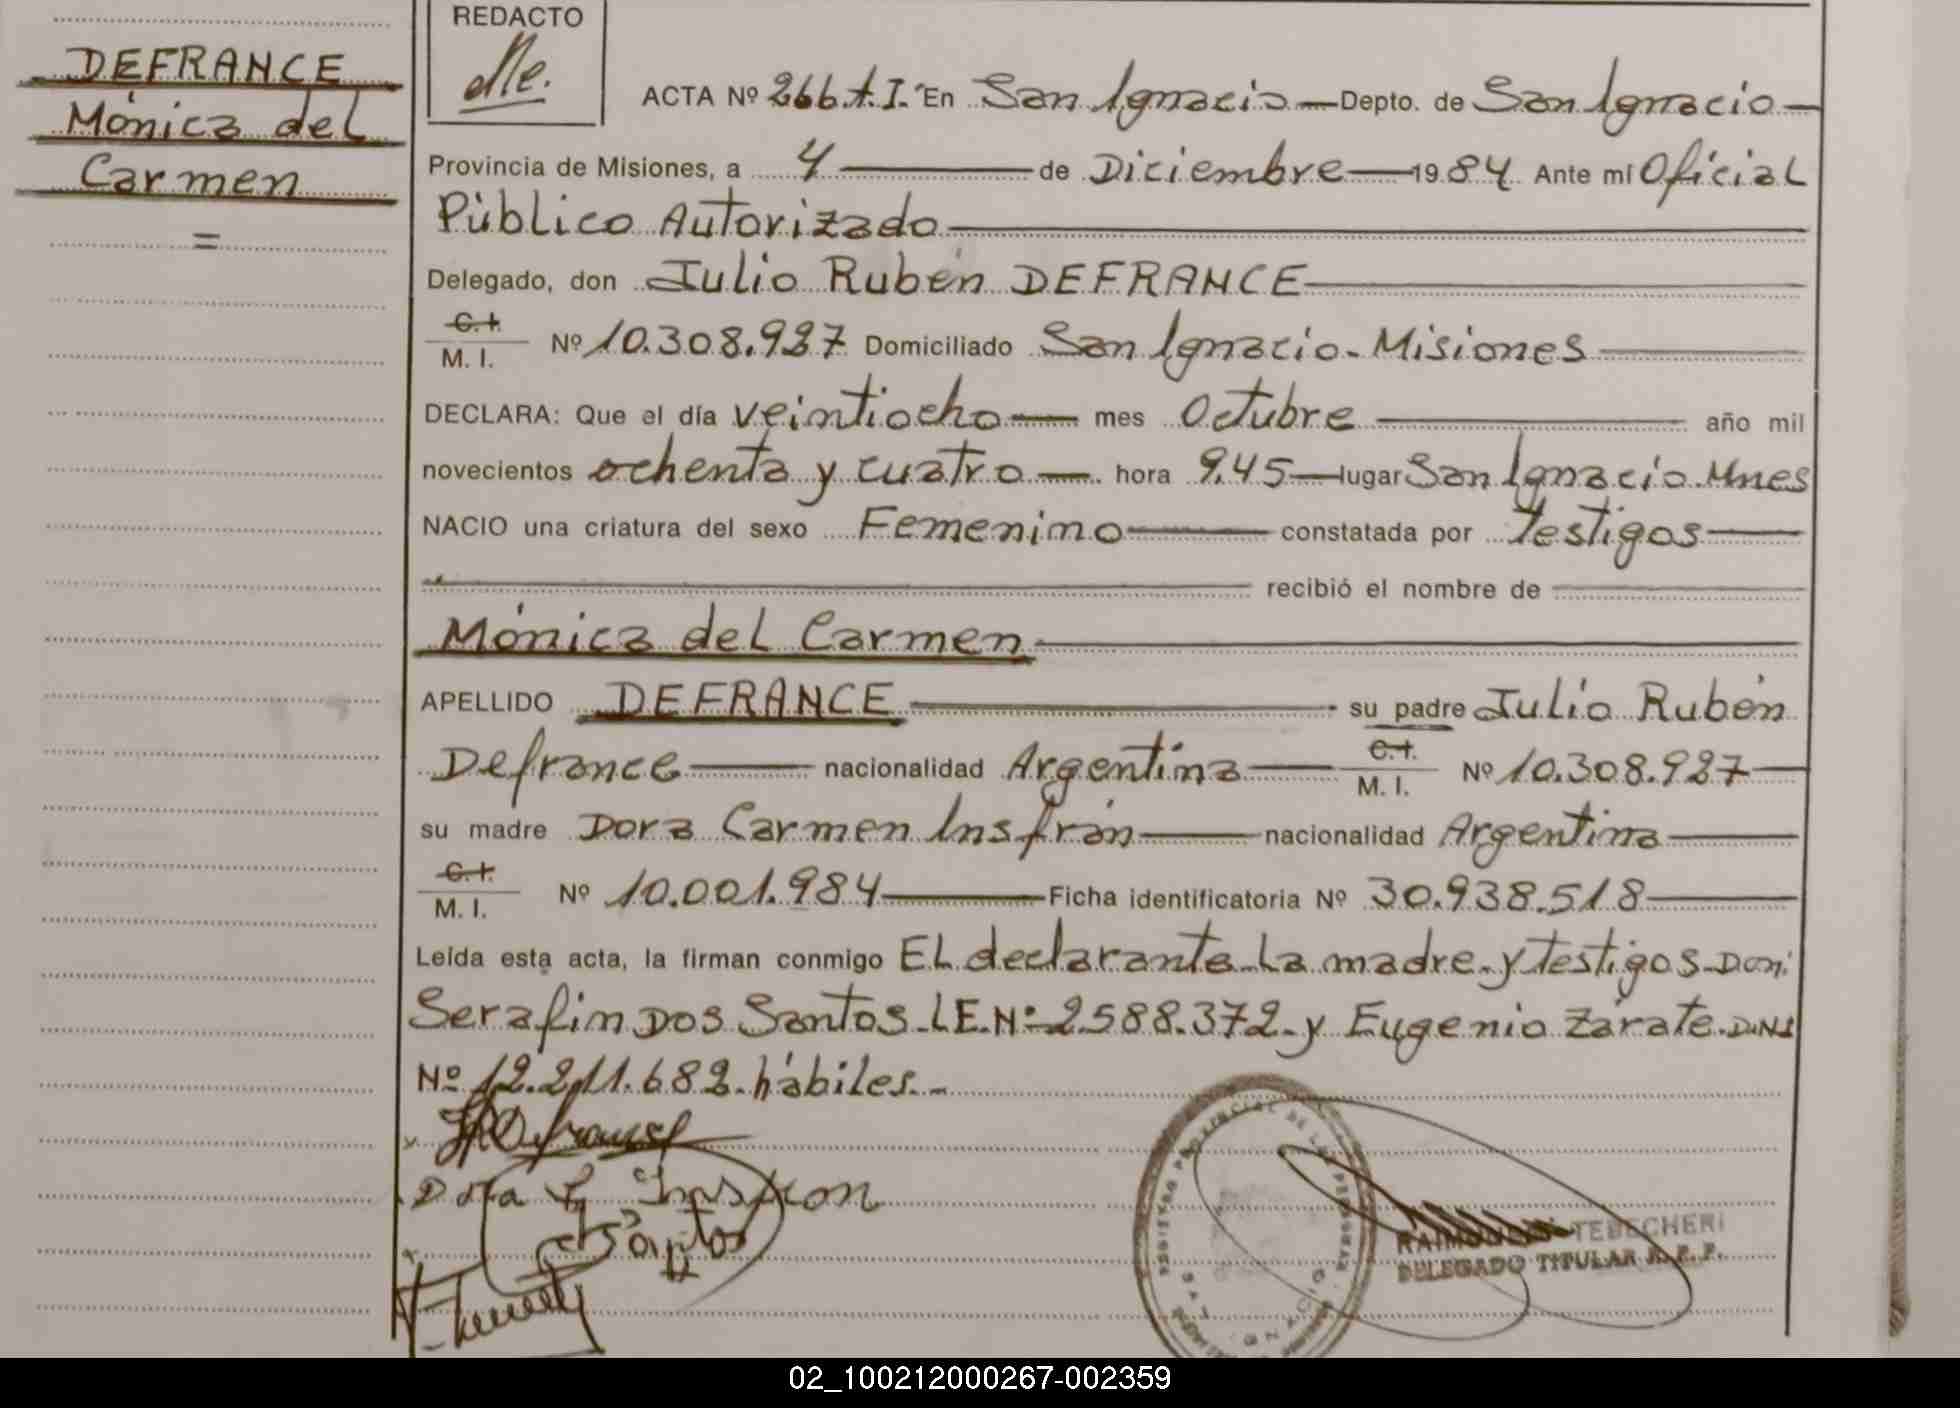 DEFRANCE
Mónica del
Carmen
=
REDACTO
ACTA Nº 266 t.I. En San Ignacio — Depto. de San Ignacio —
Provincia de Misiones, a 4 — de Diciembre — 1984 Ante mí Oficial
Público Autorizado —
Delegado, don Julio Rubén DEFRANCE —
C.I.
M. I. Nº 10.308.927 Domiciliado San Ignacio - Misiones —
DECLARA: Que el día veintiocho — mes Octubre — año mil
novecientos ochenta y cuatro — hora 9,45 — lugar San Ignacio. Mnes
NACIO una criatura del sexo Femenino — constatada por Testigos —
recibió el nombre de
Mónica del Carmen —
APELLIDO DEFRANCE — su padre Julio Rubén
Defrance — nacionalidad Argentina — C.I. M. I. Nº 10.308.927 —
su madre Dora Carmen Insfrán — nacionalidad Argentina —
C.I.
M. I. Nº 10.001.984 — Ficha identificatoria Nº 30.938.518 —
Leída esta acta, la firman conmigo El declarante - La madre - y testigos - Don:
Serafin Dos Santos - L.E. Nº 2.588.372 - y Eugenio Zárate - D.N.I
Nº 12.211.682 - hábiles. -
Dora C Insfron
TEBECHERI
DELEGADO TITULAR R. P. P.
02_100212000267-002359